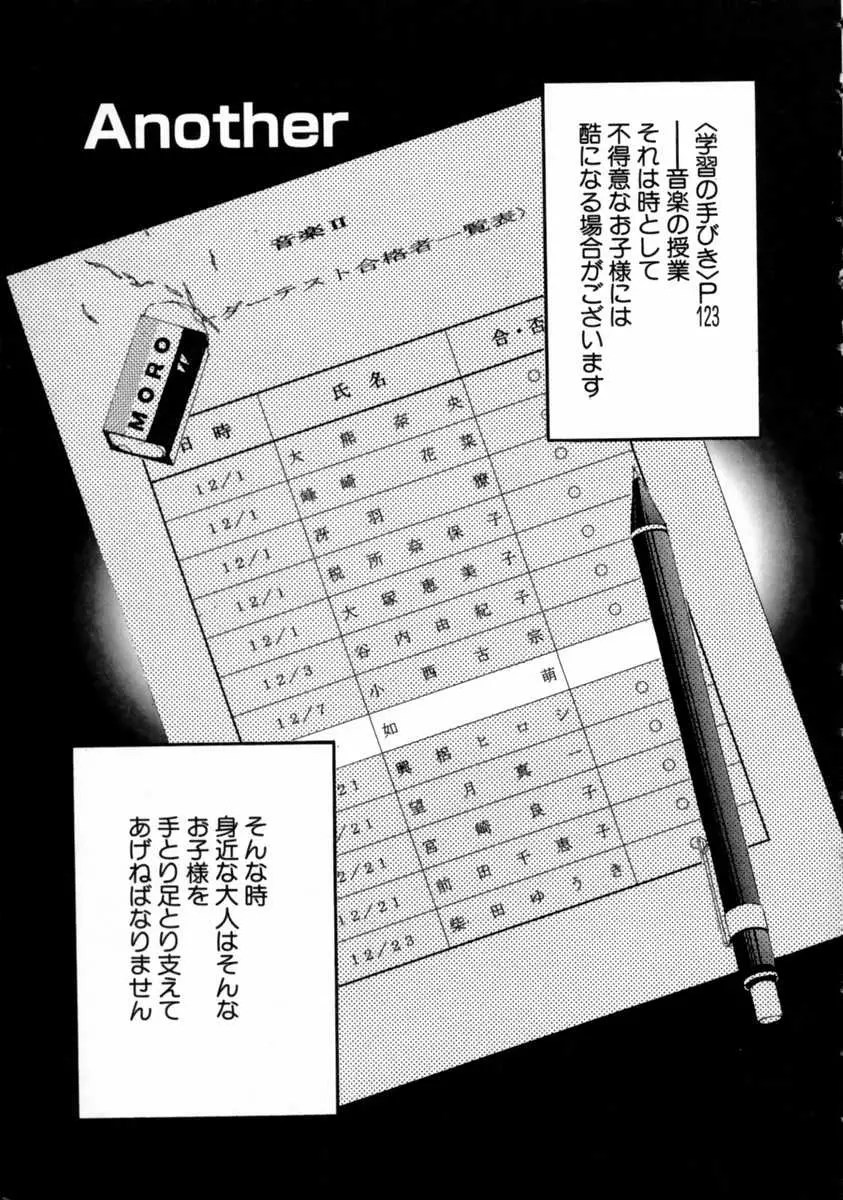 Another
〈学習の手びき〉P123
――音楽の授業
それは時として
不得意なお子様には
酷になる場合がございます
音楽Ⅱ
ーダーテスト合格者一覧表〉
MORO
日時 氏名 合・否
12/1 大熊奈央 ○
12/1 峰崎花菜 ○
12/1 冴羽獠 ○
12/1 税所奈保子 ○
12/1 大塚恵美子 ○
12/3 谷内由紀子 ○
12/7 小西古宗 ○
如萌
21 奥格ヒロシ ○
/21 望月真一 ○
12/21 宮崎良子 ○
12/21 前田千恵子 ○
12/23 柴田ゆうき
そんな時
身近な大人はそんな
お子様を
手とり足とり支えて
あげねばなりません